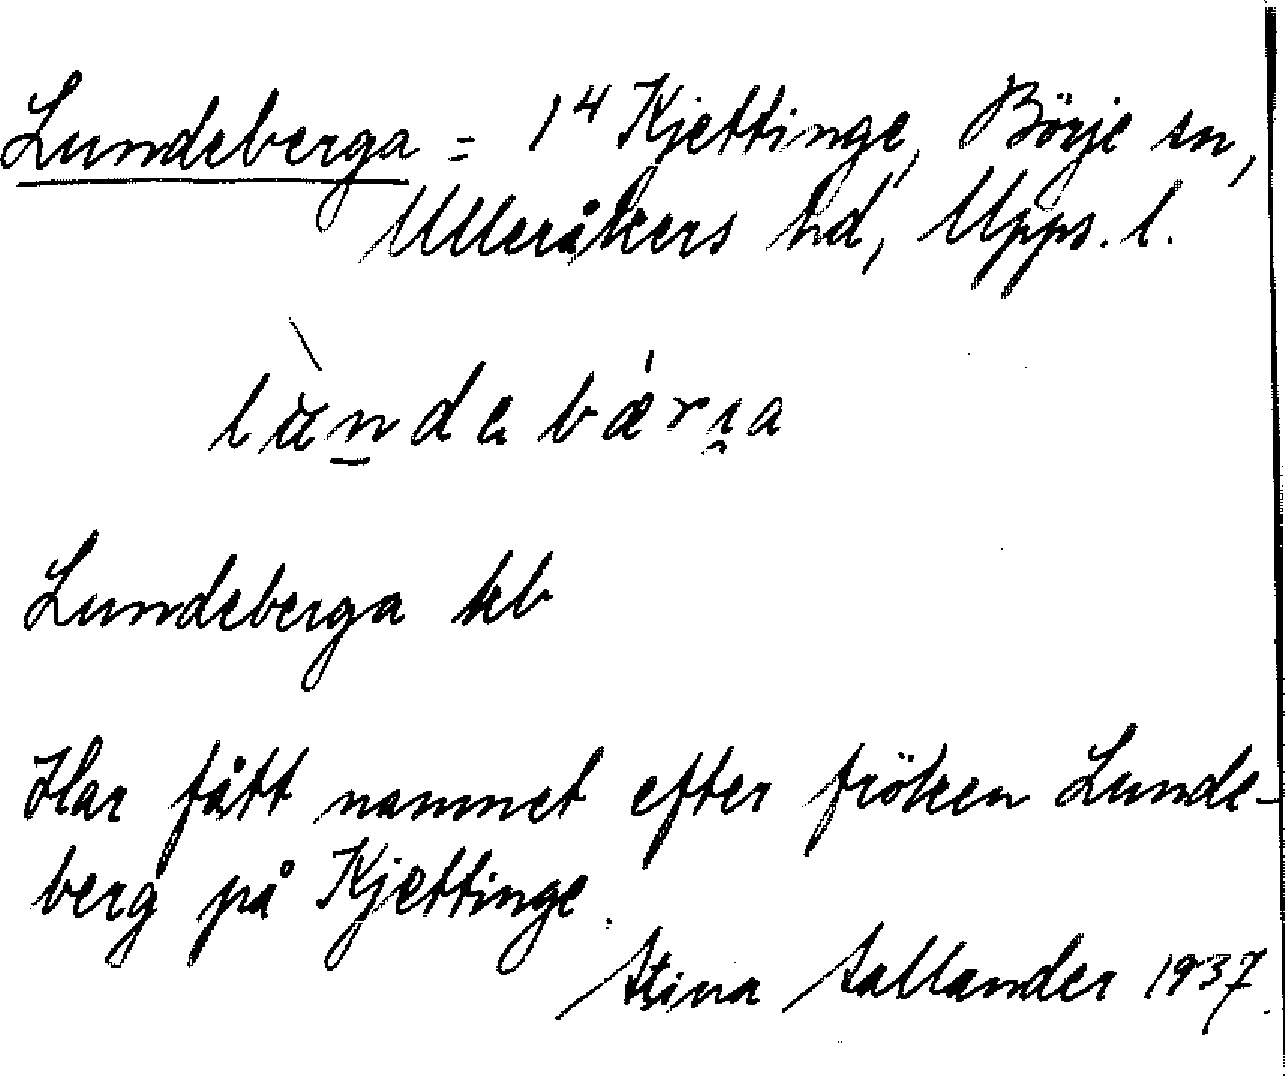 Lundeberga = 1⁴ Kjettinge, Börje sn,
Ulleråkers hd, Upps. l.
Lundeberga kb
Har fått namnet efter fröken Lunde-
berg på Kjettinge.
Stina Sallander 1937.